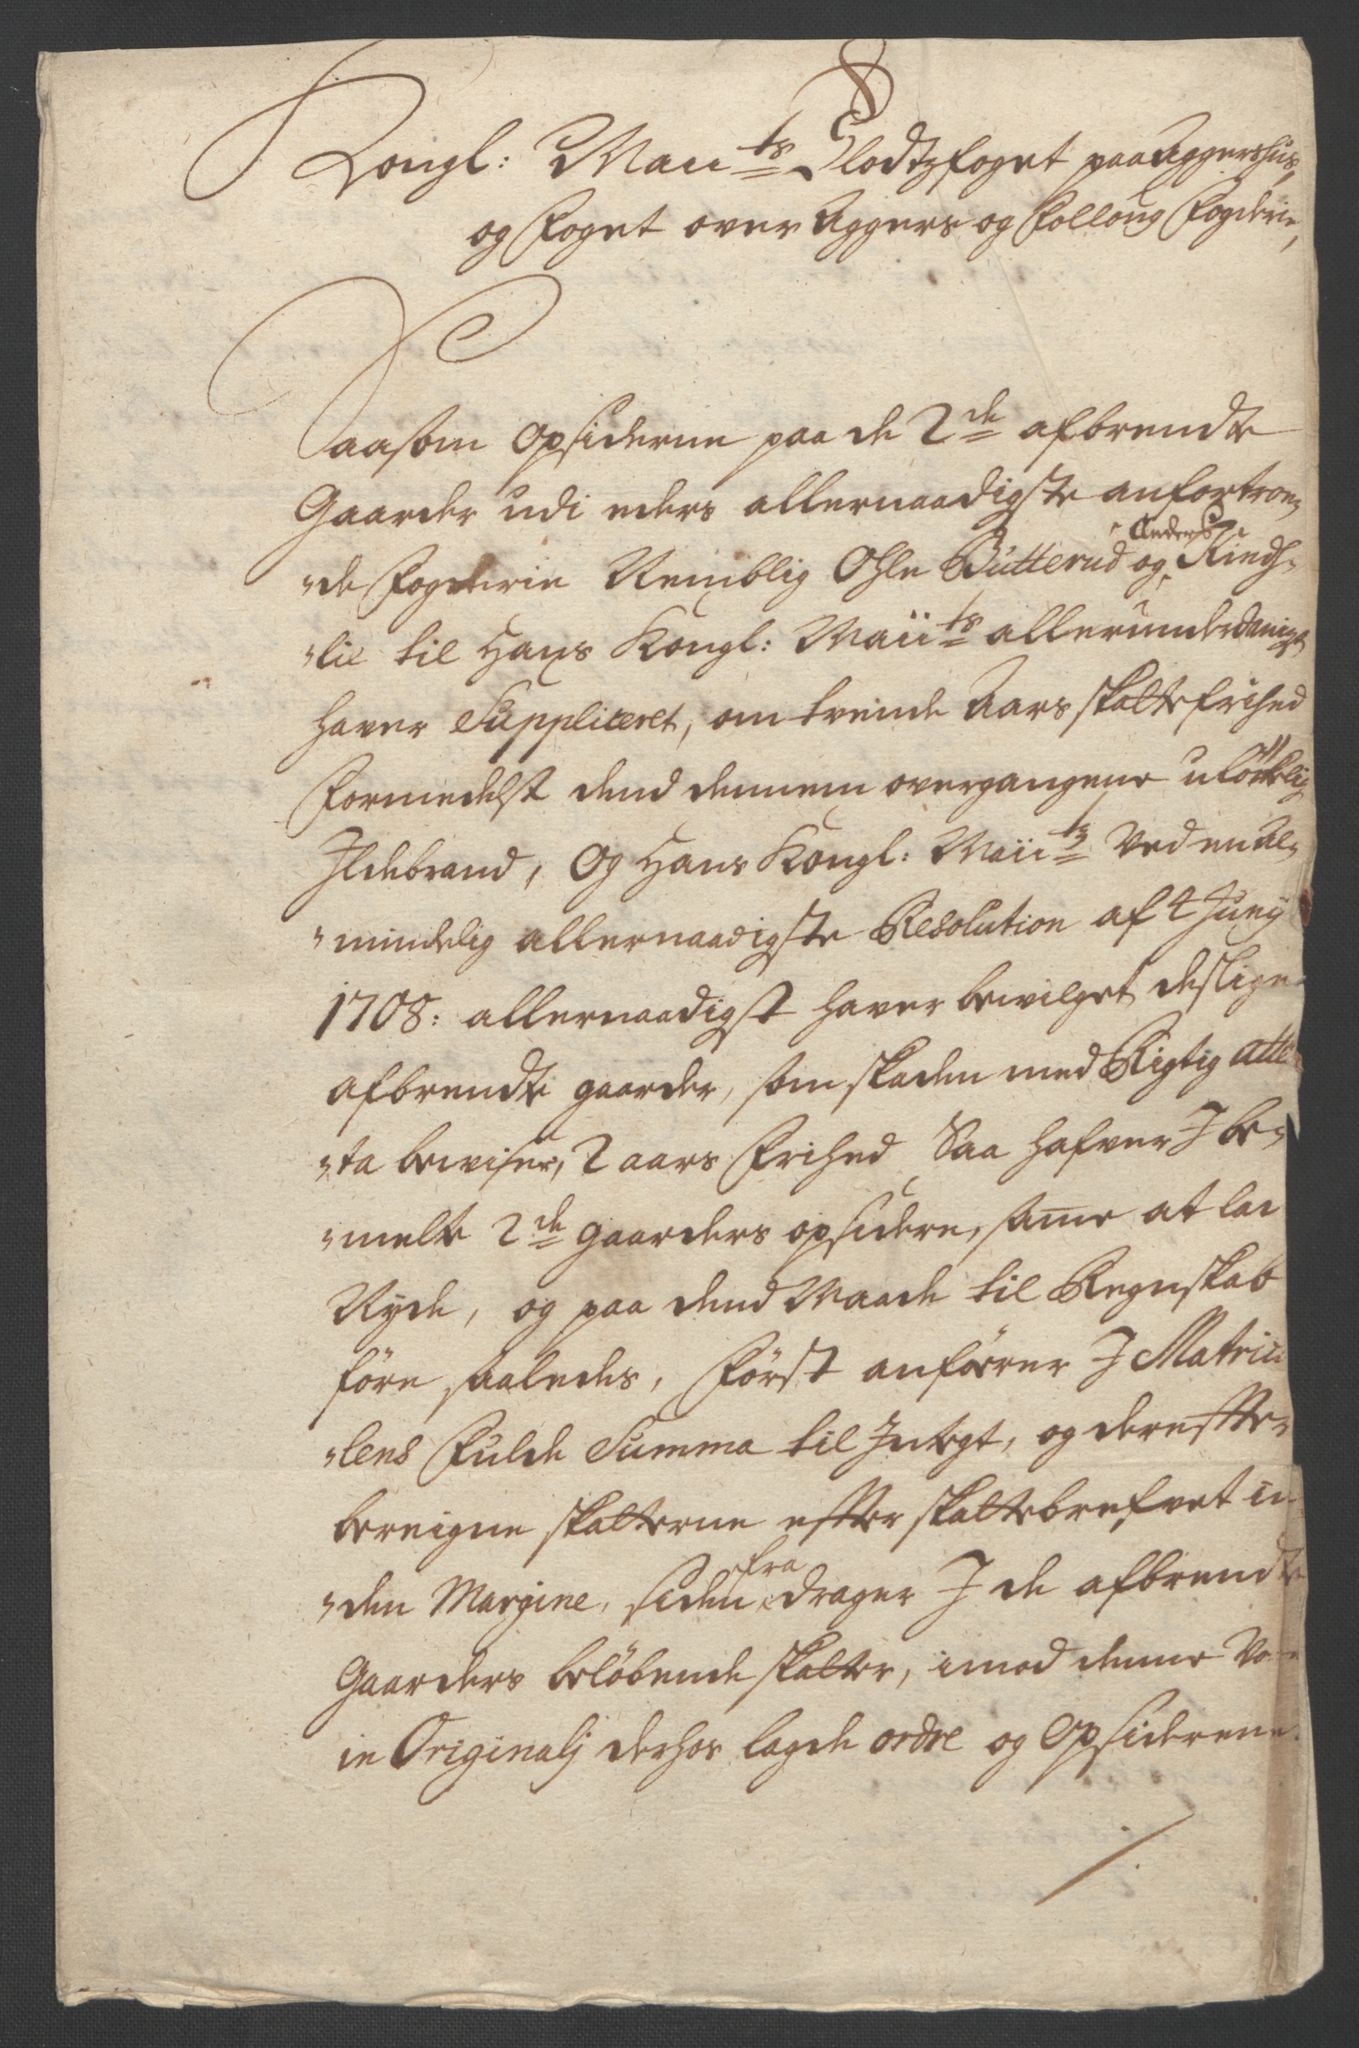 Kongl: Maii ts Slodtzfoget paa Aggershus,
og Foget over Aggers og Follong Fogderie,
Saasom Opsiderne paa de 2de afbrendte
Gaarder udi eders allernaadigste anfortroe„
„de Fogderie Nemblig Ohle Butterud og Anders Kindh„
„lie til Hans Kongl: Maiits allerunderdanigst
haver Suppliceret, om trende Aars skatte frihed
Formedelst dend dennem overgangene ulökelig
Ildebrand, Og Hans Kongl: Maiits Ved en Al„
„mindelig allernaadigste Resolution af 4 Junij
1708: allernaadigst haver bewilget deslige
afbrendte gaarder, som skaden med Rigtig atte
„sta bewiser, 2 aars Frihed Saa hafver I be„
„melte 2de gaarders opsidere, same at lai
Nyde, og paa dend Maade til Regnskab
före saaledes, Först anförer I Matricu
„lens Fulde Summa til Indtegt, og derefter
bereigne skatterne efter skattebrefvet in„
„den Margine, siden fra drager I de afbrendte
Gaarders belöbende skatter, imod denne Vo„
in Originalj derhos lagde ordre og Opsiderene